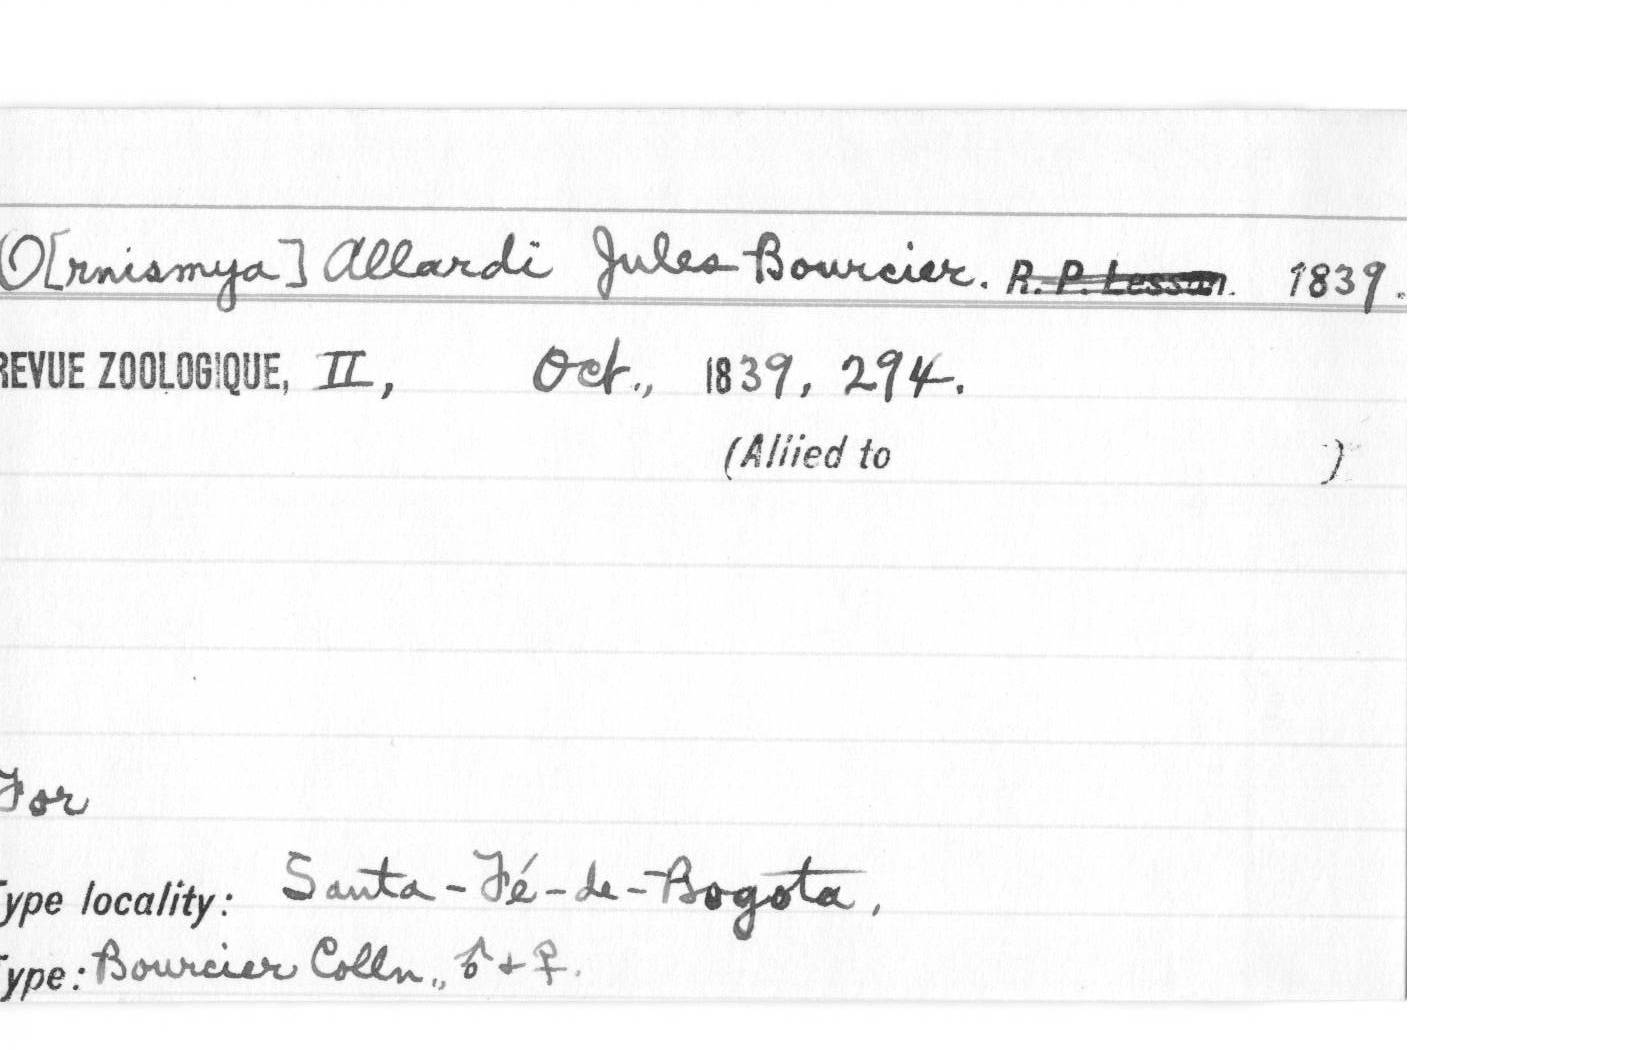 O[rnismya] Allardi Jules Bourcier. R. P. Lesson. 1839.
REVUE ZOOLOGIQUE, II, Oct., 1839, 294.
(Allied to )
For
Type locality: Santa-Fé-de-Bogota,
Type: Bourcier Colln., ♂ + ♀.